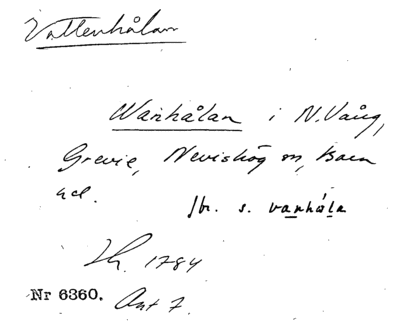 Vattenhålan
Wanhålan i N. Vång,
Grevie, Nevishög sn, Bara
hd.
jbr. s. vanhåla
1784
Nr 6360. Ant 7.